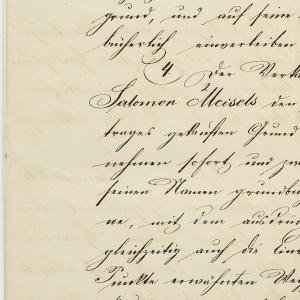 grund, und auf seine
bücherlich einverleiben
4.
Der Verk
Salomon Meisels den
trages gekauften Grund
nehmen sofort und zwa
seinen Namen grundbü
ne, mit dem ausdrück
gleichzeitig auch die Einv
Punkte erwähnten Weg